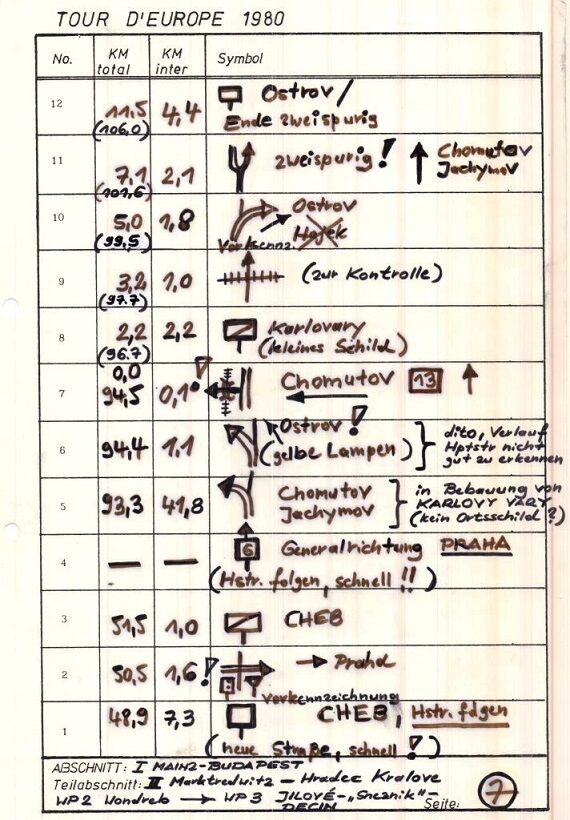 TOUR D'EUROPE 1980
No.
KM total
KM inter
Symbol
12
11,5
(106,0)
4,4
Ostrov /
Ende zweispurig
11
7,1
(101,6)
2,1
zweispurig!
Chomutov
Jachymov
10
5,0
(99,5)
1,8
Ostrov
Hajek
Vorkennz.
9
3,2
(97.7)
1,0
(zur Kontrolle)
8
2,2
(96.7)
2,2
Karlovary
(kleines Schild)
7
0,0
94,5
0,1
Chomutov
13
6
94,4
1,1
Ostrov!
(gelbe Lampen)
dito, Verlauf
Hptstr nicht
gut zu erkennen
5
93,3
41,8
Chomutov
Jachymov
in Bebauung von
KARLOVY VARY
(kein Ortsschild?)
4
—
—
6
Generalrichtung PRAHA
(Hstr. folgen, schnell!!)
3
51,5
1,0
CHEB
2
50,5
1,6!
→ Praha
Vorkennzeichnung
1
48,9
7,3
CHEB, Hstr. folgen
(neue Straße, schnell!)
ABSCHNITT: I MAINZ-BUDAPEST
Teilabschnitt: III Marktredwitz – Hradec Kralove
WP2 Wondreb → WP3 JILOVÉ-„Sneznik"-
DECIN
Seite: 7